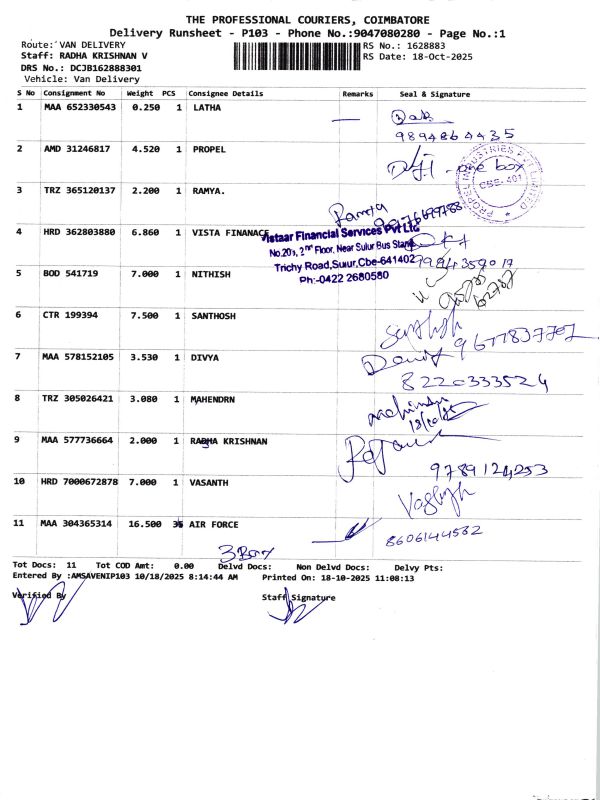 THE PROFESSIONAL COURIERS, COIMBATORE
Delivery Runsheet - P103 - Phone No.:9047080280 - Page No.:1
Route: VAN DELIVERY RS No.: 1628883
Staff: RADHA KRISHNAN V RS Date: 18-Oct-2025
DRS No.: DCJB162888301
Vehicle: Van Delivery
S No Consignment No Weight PCS Consignee Details Remarks Seal & Signature
1 MAA 652330543 0.250 1 LATHA
9894864435
2 AMD 31246817 4.520 1 PROPEL
one box
PROPEL INDUSTRIES PVT LIMITED
CBE-401
3 TRZ 365120137 2.200 1 RAMYA.
Ramya
4 HRD 362803880 6.860 1 VISTA FINANACE
Vistaar Financial Services Pvt Ltd
No.203, 2nd Floor, Near Sulur Bus Stand
Trichy Road, Sulur, Cbe-641402
Ph:-0422 2680580
5 BOD 541719 7.000 1 NITHISH
6 CTR 199394 7.500 1 SANTHOSH
Santhosh
7 MAA 578152105 3.530 1 DIVYA
8220333524
8 TRZ 305026421 3.080 1 MAHENDRN
18/10/25
9 MAA 577736664 2.000 1 RADHA KRISHNAN
9789124253
10 HRD 7000672878 7.000 1 VASANTH
11 MAA 304365314 16.500 3 AIR FORCE
8606144532
3 Box
Tot Docs: 11 Tot COD Amt: 0.00 Delvd Docs: Non Delvd Docs: Delvy Pts:
Entered By :AMSAVENIP103 10/18/2025 8:14:44 AM Printed On: 18-10-2025 11:08:13
Verified By Staff Signature